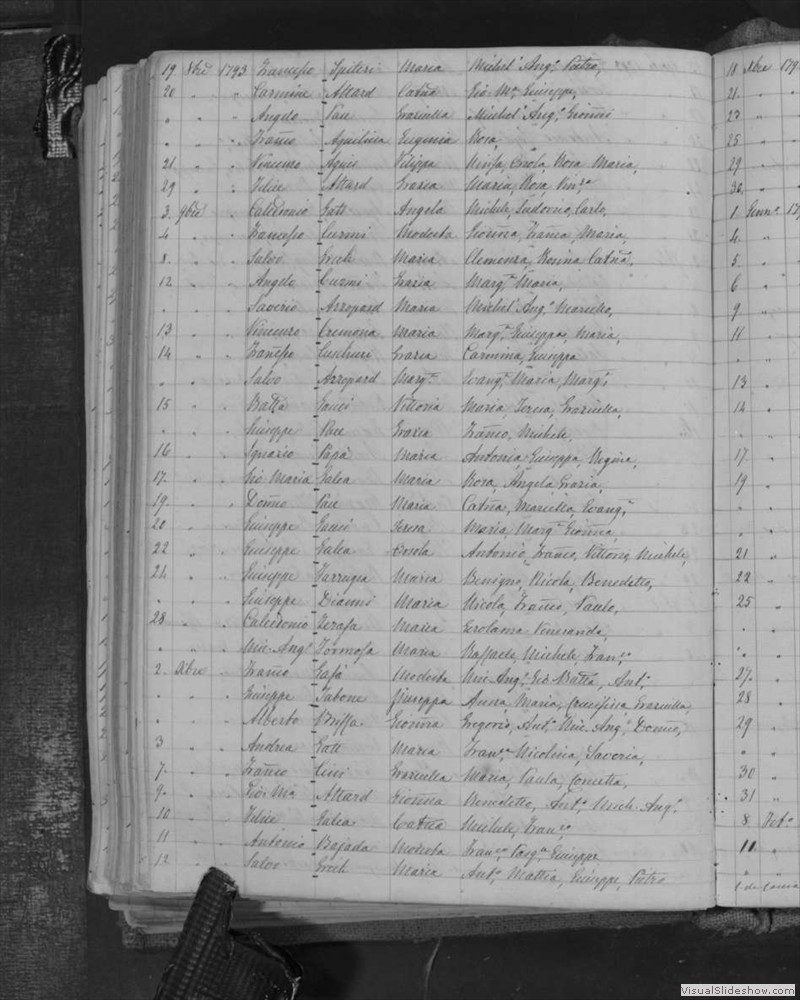 19 8bre 1793 Francesco Spiteri Maria Michel' Ang.o Pietro,
20 " " Carmine Attard Catña Gio M.a Giuseppe,
" " " Angelo Pace Graziulla Michel' Ang.o Gioñni
" " " Franco Aquilina Eugenia Rosa,
21 " " Vincenzo Agius Filippa Ninfa, Orsola, Rosa Maria,
29 " " Felice Attard Grazia Maria, Rosa, Vin.a
3 9bre " Calcidonio Gatt Angela Michele, Ludovico, Carlo,
4 " " Francesco Curmi Modesta Gioñna, Frañca, Maria,
8 " " Salvo Grech Maria Clemenza, Rosina Catña,
12 " " Angelo Curmi Grazia Marg.ta Maria,
" " " Saverio Azzopard Maria Michel' Ang.o
13 " " Vincenzo Cremona Maria Marg.ta Giuseppa, Maria,
14 " " Frañco Grazia Carmina, Giuseppa
" " " Salvo Azzopard Marg.ta Evang.ta Maria, Marg.ta
15 " " Batta Gauci Vittoria Maria, Teresa, Graziulla,
" " " Giuseppe Pace Grazia Franco, Michele,
16 " " Ignazio Papa Maria Antonia, Giuseppa, Regina,
17 " " Gio Maria Galea Maria Rosa, Angela, Grazia,
19 " " Domco Pace Maria Catña, Marietta, Evang.ta
20 " " Giuseppe Gauci Teresa Maria, Marg.ta Gioñna,
22 " " Giuseppe Galea Orsola Antonio, Franco, Vittorio, Michele,
24 " " Giuseppe Farrugia Maria Benigno, Nicola, Benedetto,
" " " Giuseppe Maria Nicola, Franco, Paulo,
28 " " Calcidonio Zerafa Maria Gerolama Veneranda,
" " " Mic. Ang.o Formosa Maria Raffaele, Michele, Fran.co
2 Xbre " Franco Gafà Modesta Mic. Ang.o, Gio. Batta, Ant.o
" " " Giuseppe Tabone Giuseppa Anna, Maria, Crocifissa, Graziulla,
" " " Alberto Briffa Gioñna Gregorio, Ant.o Mic. Ang.o Domco,
3 " " Andrea Gatt Maria Fran.ca Nicolina, Saveria,
7 " " Franco Cini Graziulla Maria, Paula, Cometta,
9 " " Gio: Ma Attard Gioñna Benedetto, Ant.o Mich. Ang.o
10 " " Felice Galea Catña Michele, Fran.co
11 " " Antonio Bajada Modesta Fran.co, Pasq.le Giuseppe
12 " " Salvo Grech Maria Ant.o Mattia, Giuseppe, Pietro
18 Xbre 179
21 "
23 "
25 "
29 "
30 "
1 Genn.o 17
4 "
5 "
6 "
9 "
11 "
" "
13 "
14 "
17 "
19 "
21 "
22 "
25 "
27 "
28 "
29 "
30 "
31 "
8 Feb.o
11 "
VisualSlideshow.com